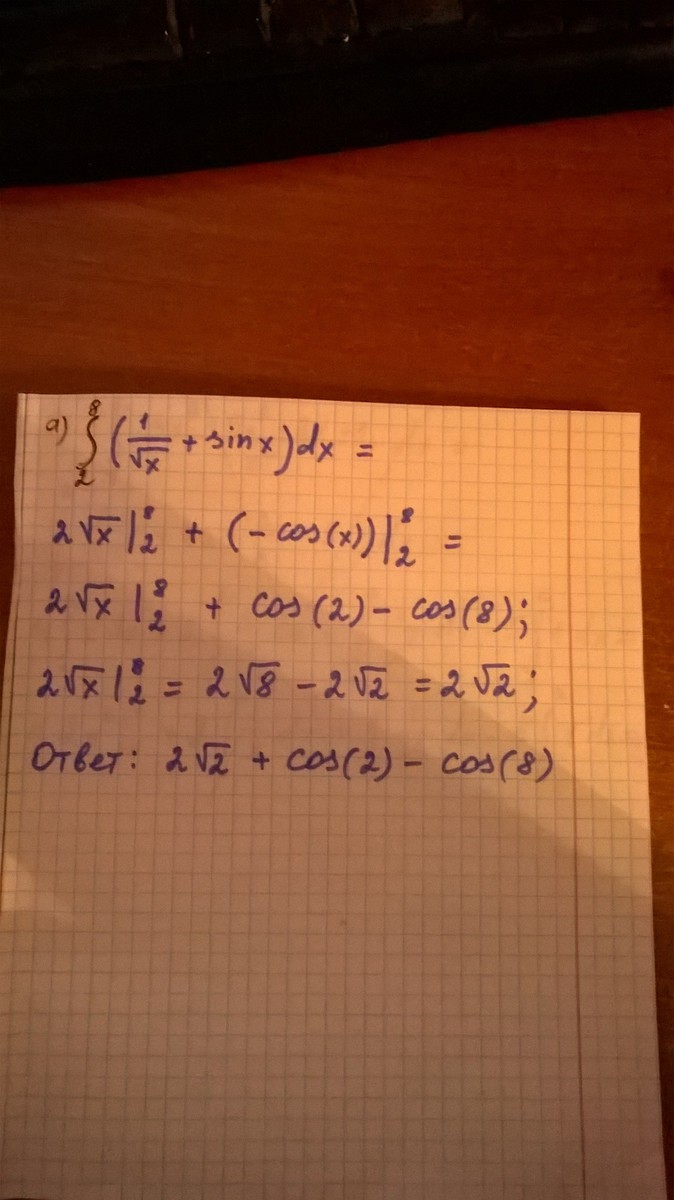 а) ∫₂⁸ (1/√x + sin x) dx =
2√x |₂⁸ + (-cos(x)) |₂⁸ =
2√x |₂⁸ + cos(2) - cos(8);
2√x |₂⁸ = 2√8 - 2√2 = 2√2;
Ответ: 2√2 + cos(2) - cos(8)